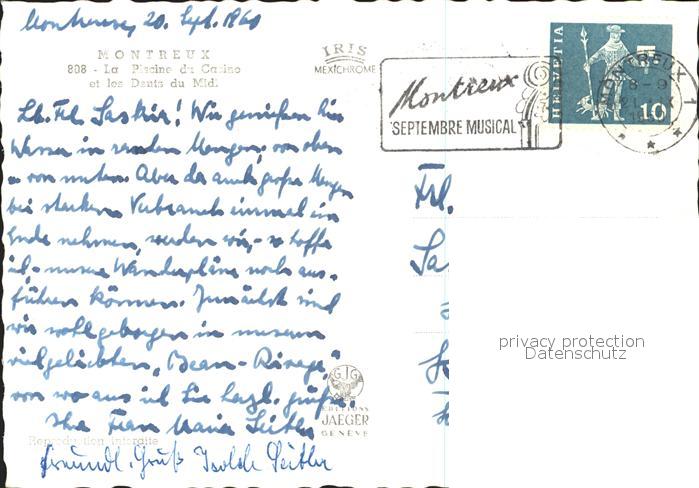 Montreux, 20. Sept. 1960
MONTREUX
808 - La Piscine du Casino
et les Dents du Midi
IRIS
MEXICHROME
Montreux
SEPTEMBRE MUSICAL
HELVETIA
10
MONTREUX
8-9
Lb. Frl. Saskia! Wir genießen hier
Wasser in Mengen, von oben
u. von unten. Aber da auch große Mengen
bei starkem Verbrauch einmal ein
Ende nehmen, werden wir, - so hoffe
ich - unsere Wanderpläne noch aus-
führen können. Zunächst sind
wir wohlgeborgen in unserem
vielgeliebten „Beau-Rivage",
von wo aus ich Sie herzl. grüße.
Ihre Frau Maria Seitler
Freundl. Gruß Isolde Seitler
Frl.
Sa
privacy protection
Datenschutz
GJG
EDITIONS
JAEGER
GENÈVE
Reproduction interdite